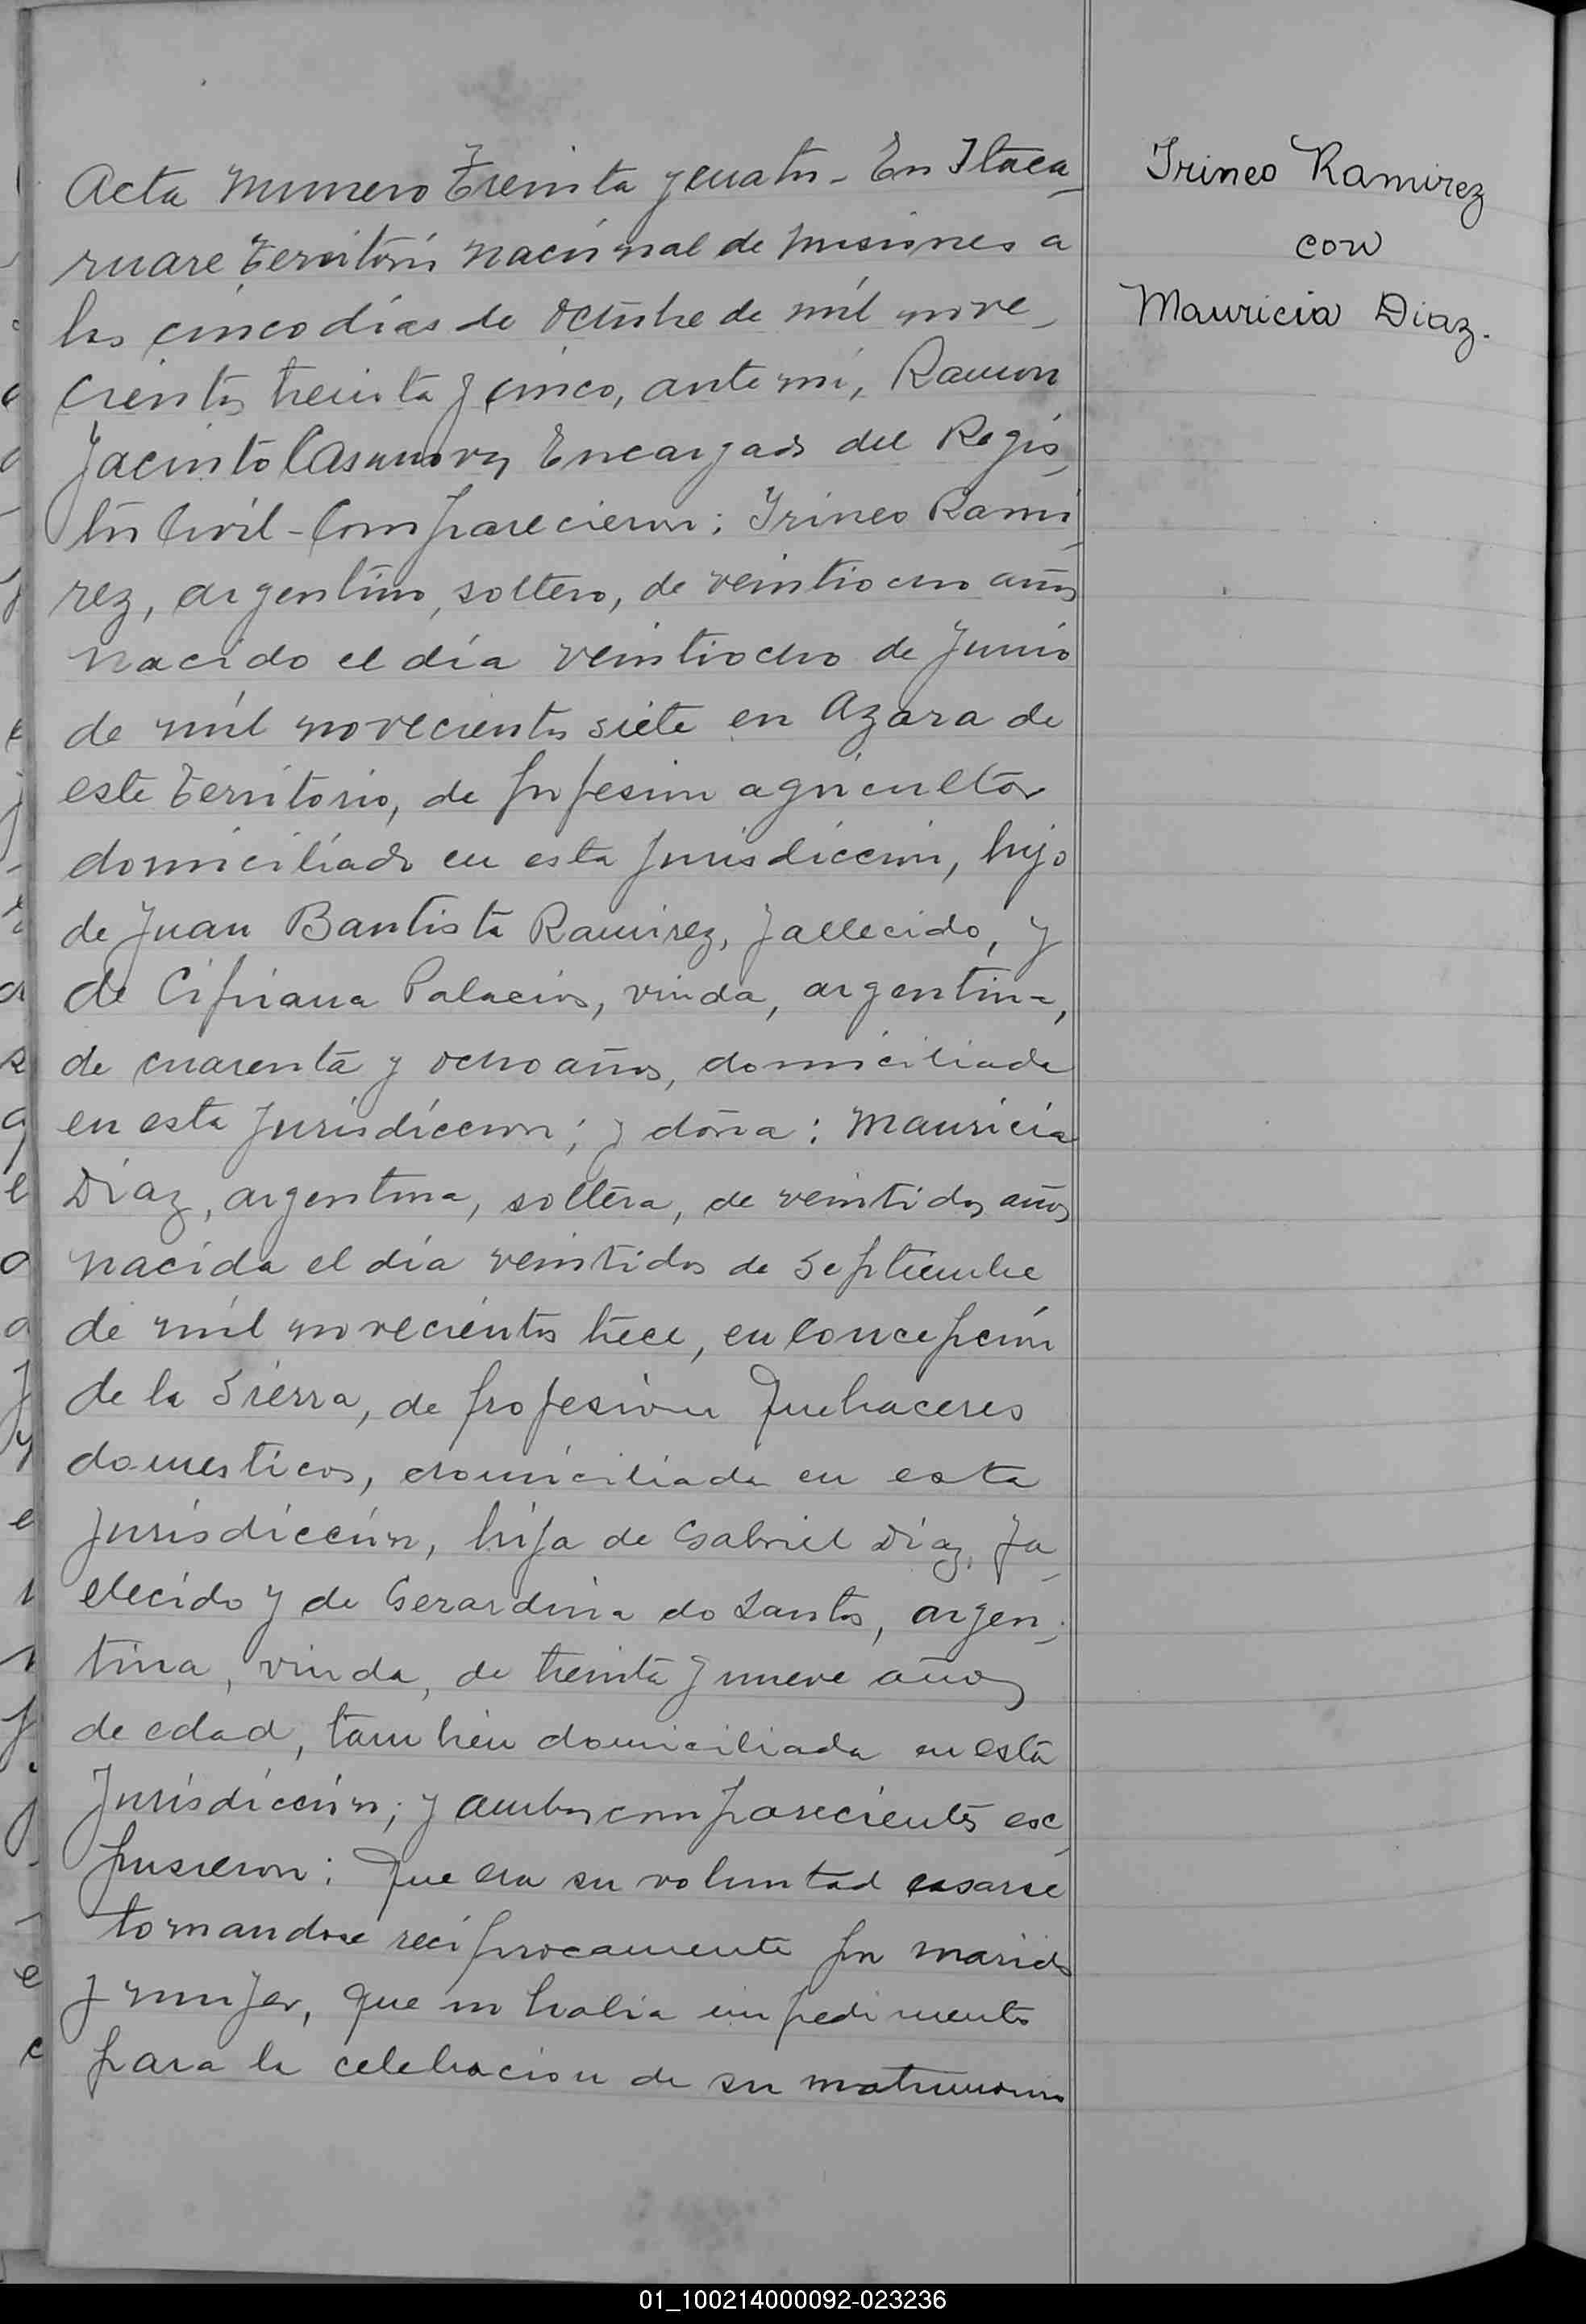 Acta Numero Treinta y cuatro - En Itaca-
ruare Territorio nacional de Misiones a
los cinco dias de Octubre de mil nove-
cientos treinta y cinco, ante mi, Ramon
Jacinto Casanova, Encargado del Regis-
tro Civil - Comparecieron: Irineo Rami-
rez, argentino, soltero, de veintiocho años
nacido el día veintiocho de Junio
de mil novecientos siete en Azara de
este Territorio, de profesion agricultor
domiciliado en esta Jurisdiccion, hijo
de Juan Bautista Ramirez, fallecido, y
de Cipriana Palacios, viuda, argentina,
de cuarenta y ocho años, domiciliada
en esta Jurisdiccion; y doña: Mauricia
Diaz, argentina, soltera, de veintidos años
nacida el día veintidos de Septiembre
de mil novecientos trece, en Concepción
de la Sierra, de profesion Quehaceres
domesticos, domiciliada en esta
Jurisdiccion, hija de Gabriel Diaz, fa-
llecido y de Gerardina do Santos, argen-
tina, viuda, de treinta y nueve años
de edad, tambien domiciliada en esta
Jurisdiccion; y ambos comparecientes esc-
pusieron: Que era su voluntad casarse
tomandose reciprocamente por marido
y mujer, que no habia impedimento
para la celebracion de su matrimonio
Irineo Ramirez
con
Mauricia Diaz.
01_100214000092-023236